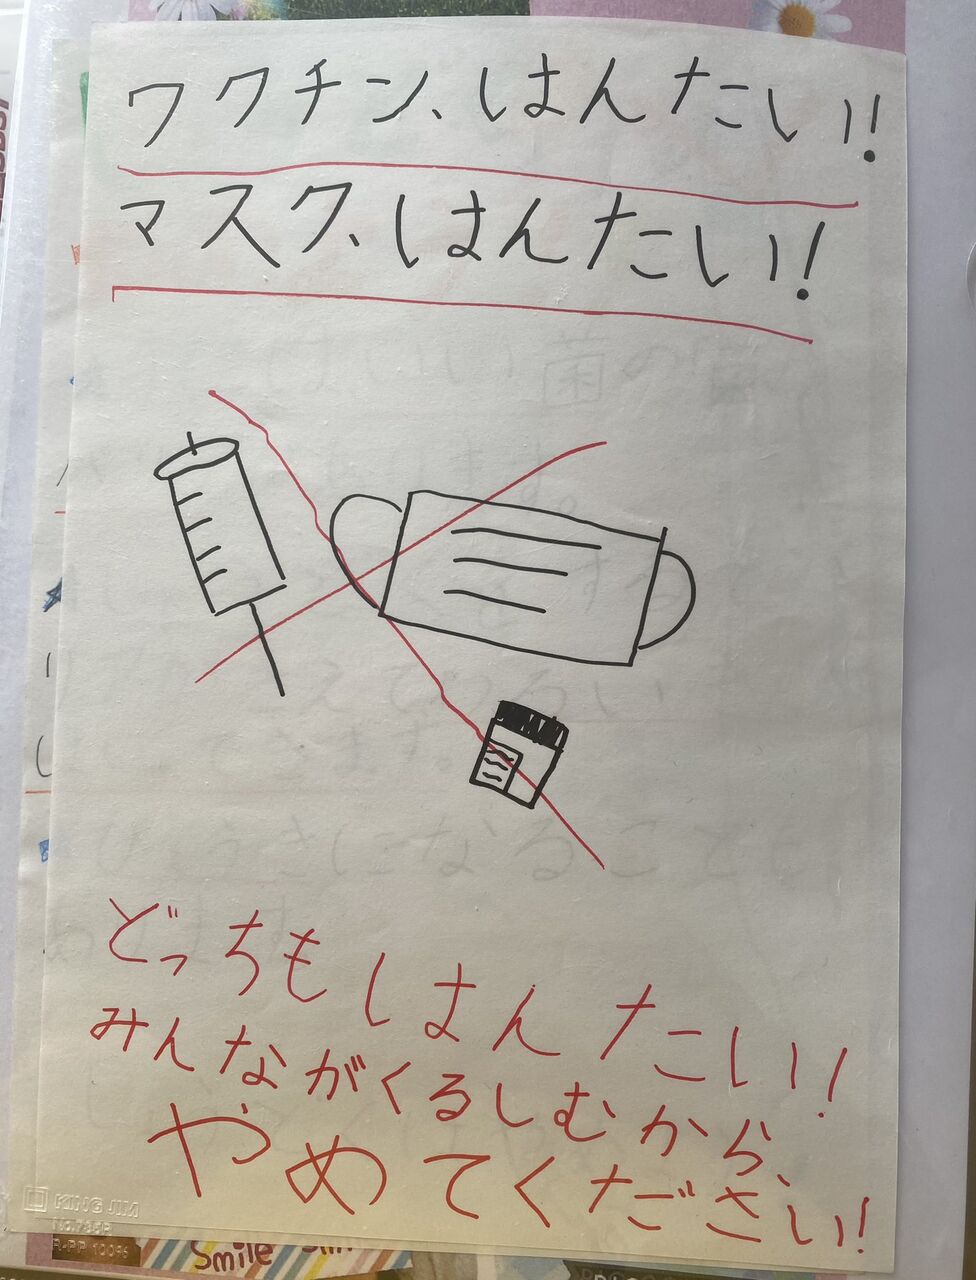 ワクチン、はんたい!
マスク、はんたい!
どっちもはんたい!
みんながくるしむから、
やめてください!
KING JIM
Smile